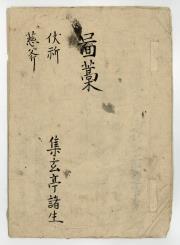 啚藁
伏祈
慈斧
集玄亭諸生